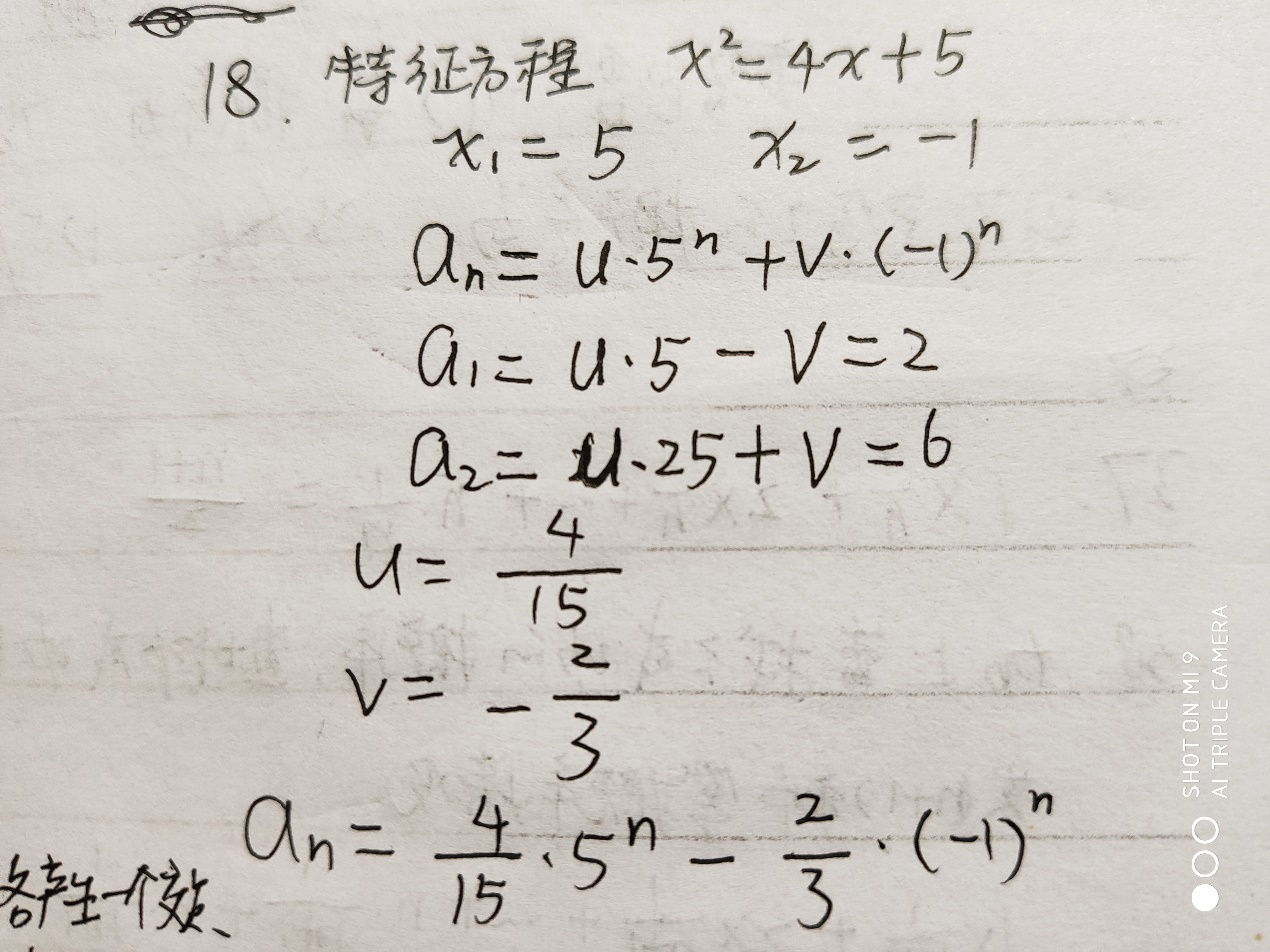 18. 特征方程 x²=4x+5
x₁=5 x₂=-1
aₙ=u·5ⁿ+v·(-1)ⁿ
a₁=u·5-v=2
a₂=u·25+v=6
u=4/15
v=-2/3
aₙ=4/15·5ⁿ-2/3·(-1)ⁿ
各产生一个
SHOT ON MI 9
AI TRIPLE CAMERA